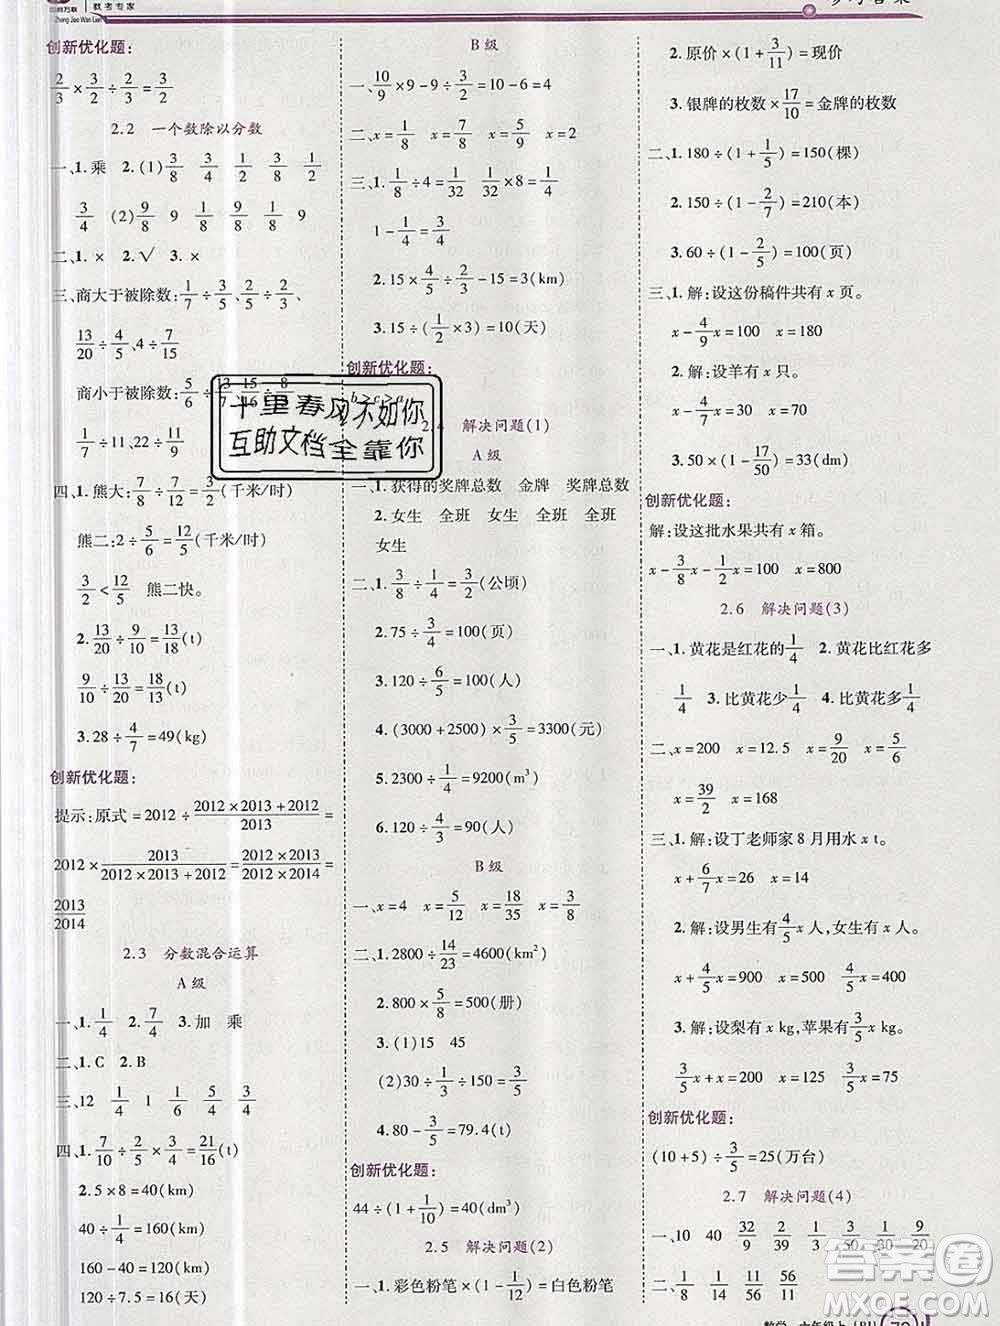 教考专家
Zhong Jiao Wan Lian
创新优化题:
2/3×3/2÷2/3=3/2
2.2 一个数除以分数
一、1.乘 2.(1)3/8 3/8 3/4 3/4
3/4 (2)9/8 9 1/8 9/8 1/8 9
二、1.× 2.√ 3.×
三、商大于被除数:1/7÷3/5、2/5÷2/3、
13/20÷4/5、4÷7/15
商小于被除数:5/6÷13/7、15/16÷8/
1/7÷11/7、12/17÷9/8
四、1.熊大:7/8÷7/12=3/2(千米/时)
熊二:2÷5/6=12/5(千米/时)
3/2<12/5 熊二快。
2.13/20÷9/10=13/18(t)
9/10÷13/20=18/13(t)
3.28÷4/7=49(kg)
创新优化题:
提示:原式=2012÷(2012×2013+2012)/2013=
2012×2013/(2012×2013+2012)=(2012×2013)/(2012×2014)=
2013/2014
2.3 分数混合运算
A 级
一、1.1/4 2.7/4 3.加 乘
二、1.C 2.B
三、12 1/4 1 1/6 5/4 3/4
四、1.7/10÷2/5×3/4=21/16(t)
2.5×8=40(km)
40÷1/4=160(km)
160-40=120(km)
120÷7.5=16(天)
B 级
一、10/9×9-9÷3/2=10-6=4
二、x=1/8 x=7/8 x=5/9 x=2
三、1.1/8÷4=1/32 1/32×8=1/4
1-1/4=3/4
2.15×4/5÷3/2-1/2=3(km)
3.15÷(1/2×3)=10(天)
创新优化题:
b>c>a
2.4 解决问题(1)
A 级
一、1.获得的奖牌总数 金牌 奖牌总数
2.女生 全班 女生 全班 全班
女生
二、1.3/8÷1/4=3/2(公顷)
2.75÷3/4=100(页)
3.120÷6/5=100(人)
4.(3000+2500)×3/5=3300(元)
5.2300÷1/4=9200(m³)
6.120÷4/3=90(人)
B 级
一、x=4 x=5/12 x=18/35 x=3/8
二、1.2800÷14/23=4600(m²)
2.800×5/8=500(册)
3.(1)15 45
(2)30÷1/4÷3/5
4.80-3/5=79.4(t)
创新优化题:
44÷(1+1/10)=40(dm³)
2.5 解决问题(2)
一、1.彩色粉笔×(1-1/12)=白色粉笔
2.原价×(1+3/11)=现价
3.银牌的枚数×17/10=金牌的枚数
二、1.180÷(1+1/5)=150(棵)
2.150÷(1-2/7)=210(本)
3.60÷(1-2/5)=100(页)
三、1.解:设这份稿件共有x页。
x-4/9x=100 x=180
2.解:设羊有x只。
x-1/4x=300 x=400
3.50÷(1-17/50)=33(dm)
创新优化题:
解:设这批水果共有x箱。
x-3/8x-1/2x=100 x=800
2.6 解决问题(3)
一、1.黄花是红花的1/4 2.黄花比红花多
1/4 3.比黄花少1/4 4.比黄花多1/4
二、x=200 x=12.5 x=9/20 x=5/6
x=39/2 x=168
三、1.解:设丁老师家8月用水x t。
x+6/7x=26 x=14
2.解:设男生有4/5x人,女生有x人。
x+4/5x=900 x=500 4/5x=400
3.解:设梨有x kg,苹果有3/5x kg。
3/5x+x=200 x=125 3/5x=75
创新优化题:
(10+5)÷3/5=25(万台)
2.7 解决问题(4)
一、10 40 32/9 32/39 1/2 1/3 1/50 1/20 9/20
二、1/4 1/12 11/2 56/11
十里春风不如你
互助文档全靠你
答案圈
MXQE.COM